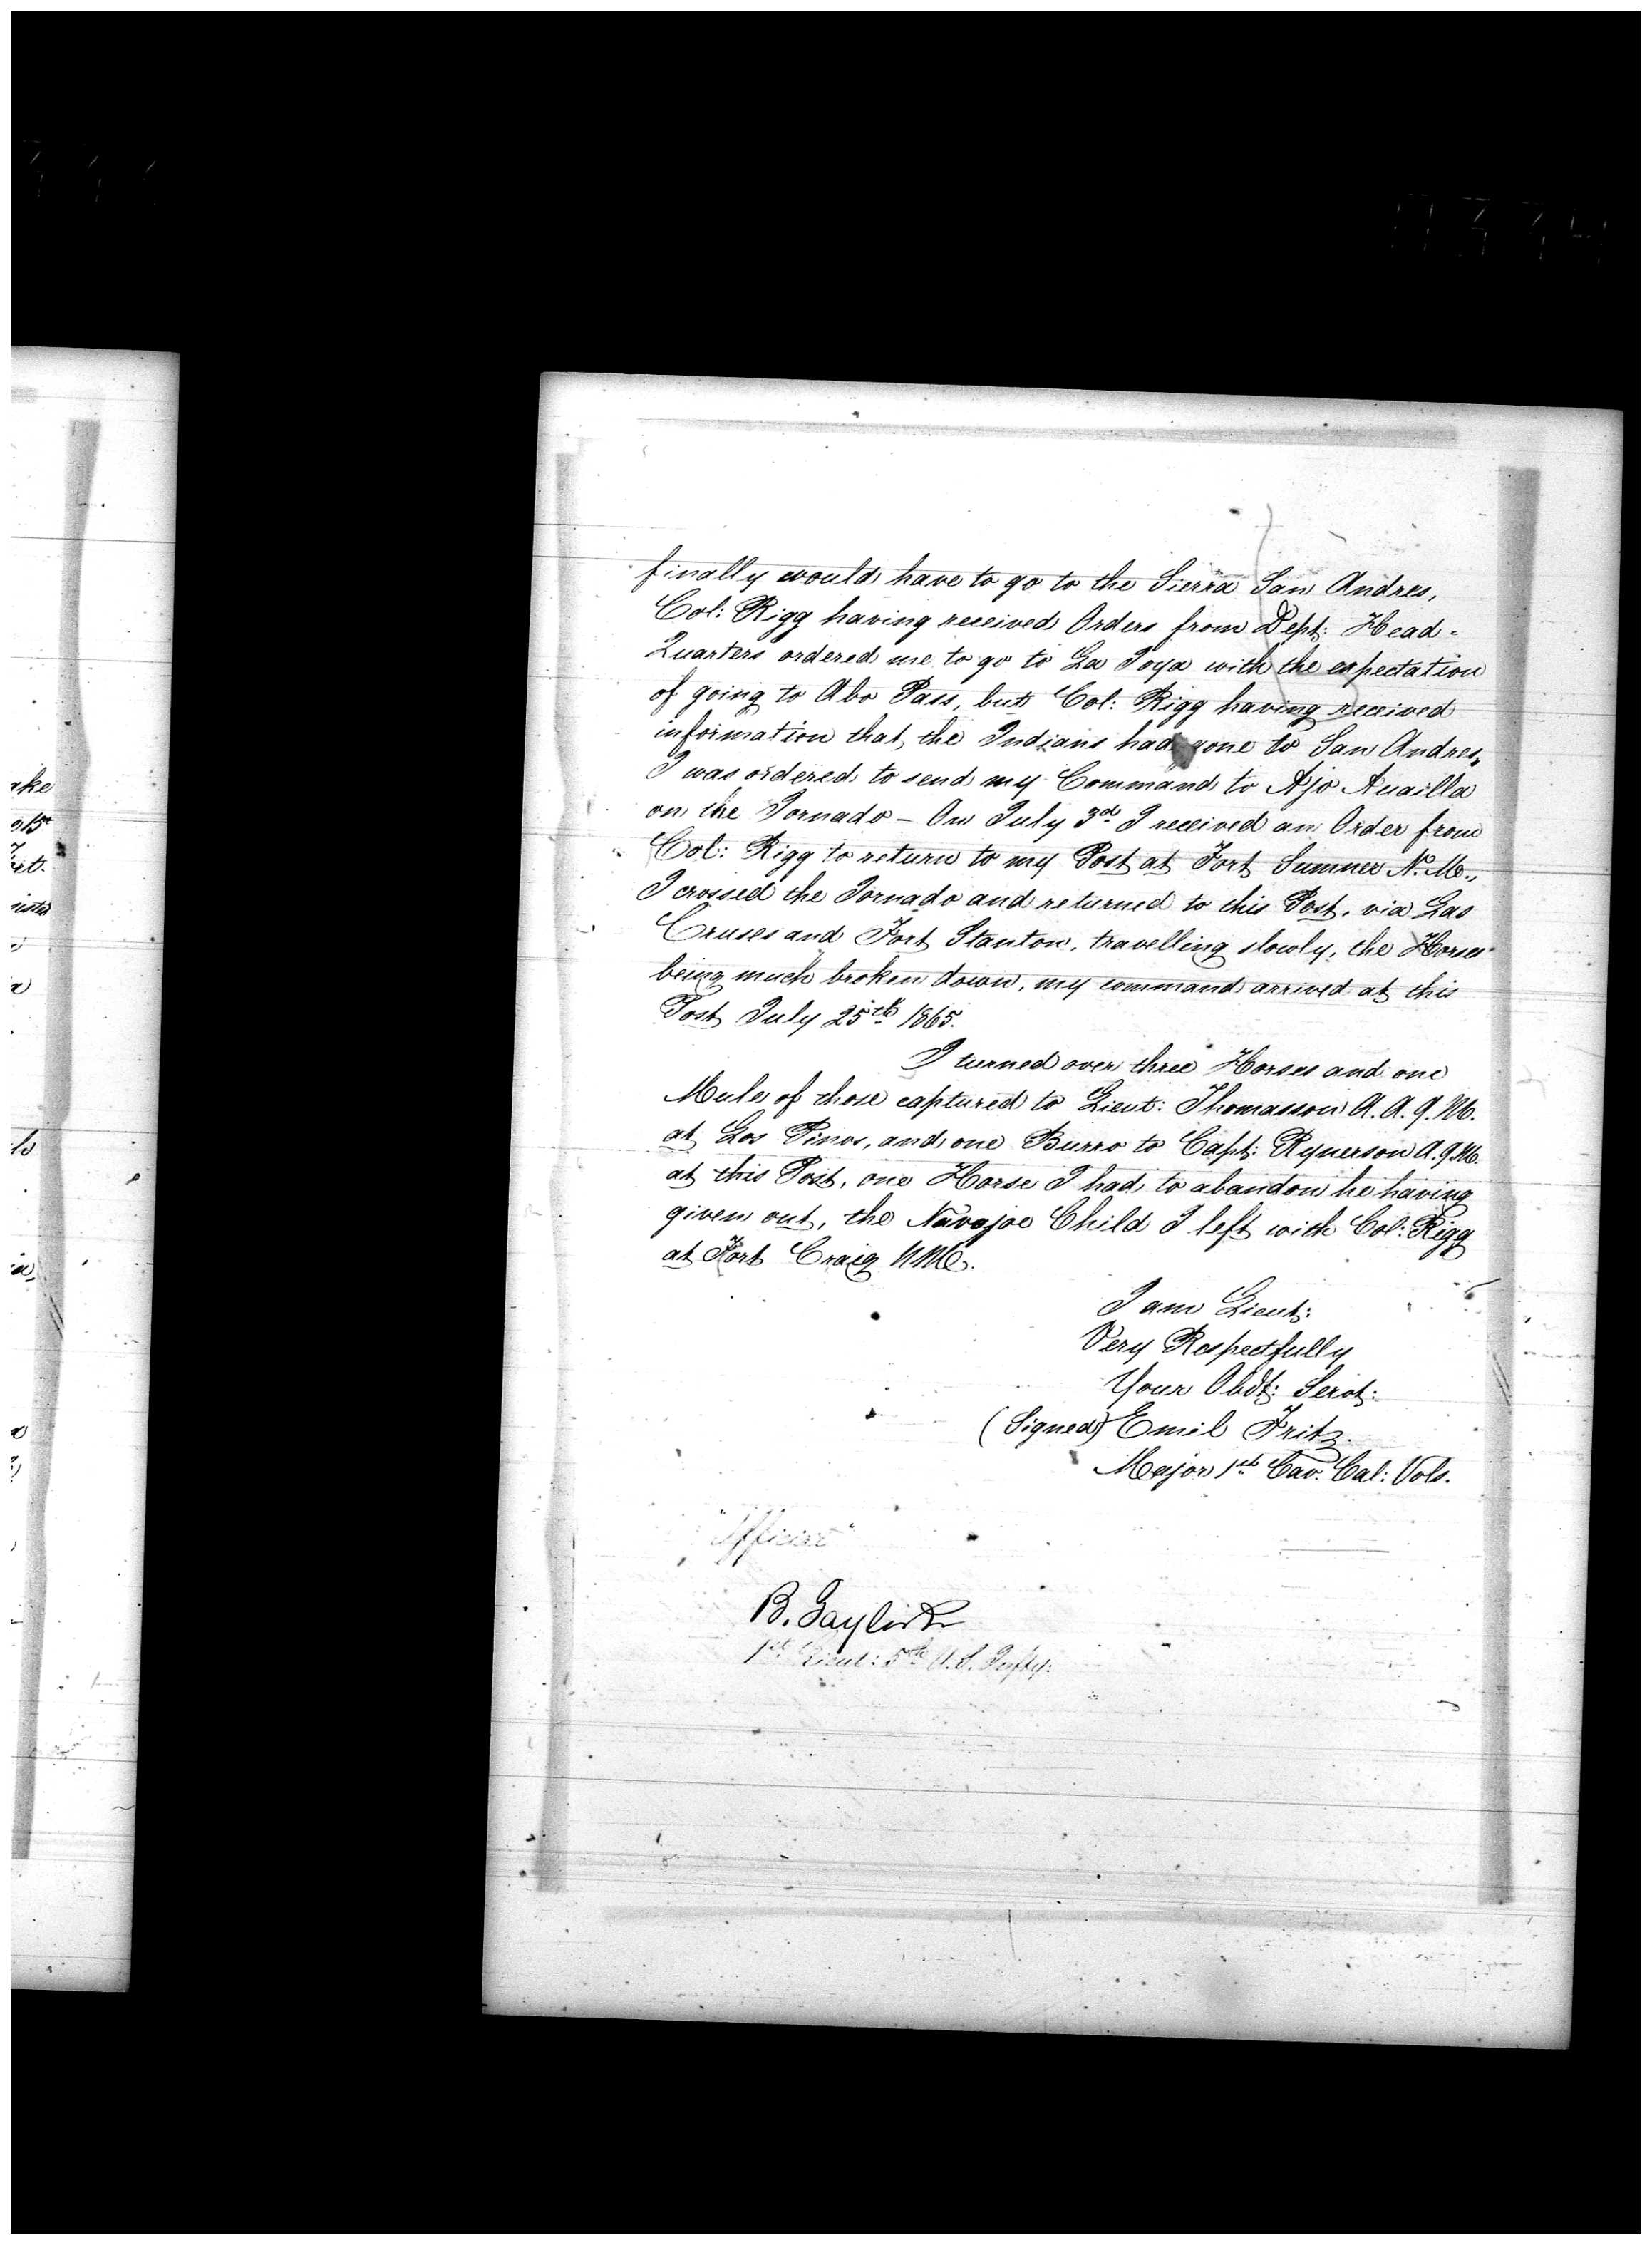 finally would have to go to the Sierra San Andres,
Col: Rigg having received Orders from Dept: Head=
Quarters ordered me to go to La Joya with the expectation
of going to Abo Pass, but Col: Rigg having received
information that the Indians had gone to San Andres,
I was ordered to send my Command to Ajo Auailla
on the Jornado – On July 3d I received an Order from
Col: Rigg to return to my Post at Fort Sumner N. M.,
I crossed the Jornado and returned to this Post, via Las
Cruses and Fort Stanton, travelling slowly, the Horses
being much broken down, my command arrived at this
Post July 25th 1865.
I turned over three Horses and one
Mule of those captured to Lieut: Thomasson A. A. Q. M.
at Los Pinos, and one Burro to Capt: Rynerson A. Q. M.
at this Post, one Horse I had to abandon he having
given out, the Navajoe Child I left with Col: Rigg
at Fort Craig N M.
I am Lieut:
Very Respectfully
Your Obdt: Servt:
(Signed) Emil Fritz.
Major 1st Cav. Cal: Vols.
"Official"
B. Taylor
1st Lieut: 5th U. S. Infty: